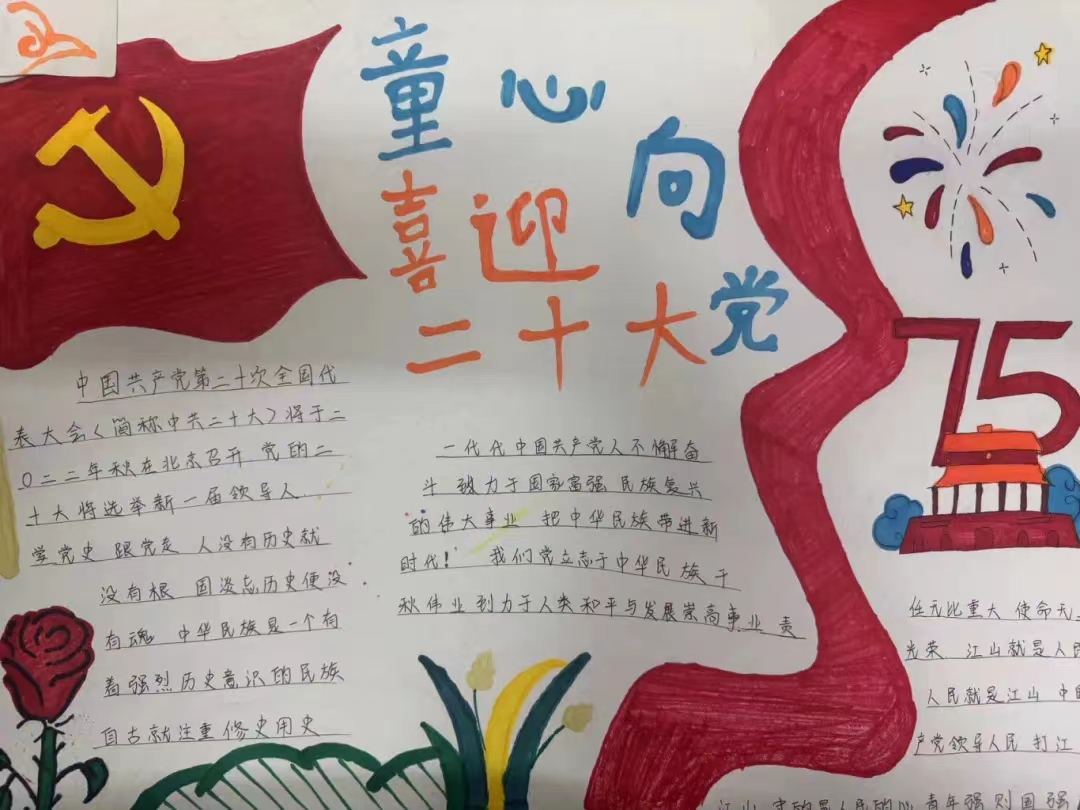 童心向党
喜迎
二十大
75
中国共产党第二十次全国代
表大会(简称中共二十大)将于二
〇二二年秋在北京召开 党的二
十大将选举新一届领导人......
学党史 跟党走 人没有历史就
没有根 国淡忘历史便没
有魂 中华民族是一个有
着强烈历史意识的民族
自古就注重修史用史
一代代中国共产党人不懈奋
斗 致力于国家富强 民族复兴
的伟大事业 把中华民族带进新
时代! 我们党立志于中华民族千
秋伟业 到力于人类和平与发展崇高事业 责
任无比重大 使命无上
光荣 江山就是人民
人民就是江山 中国
产党领导人民 打江
江山 守的是人民的心 青年强则国强